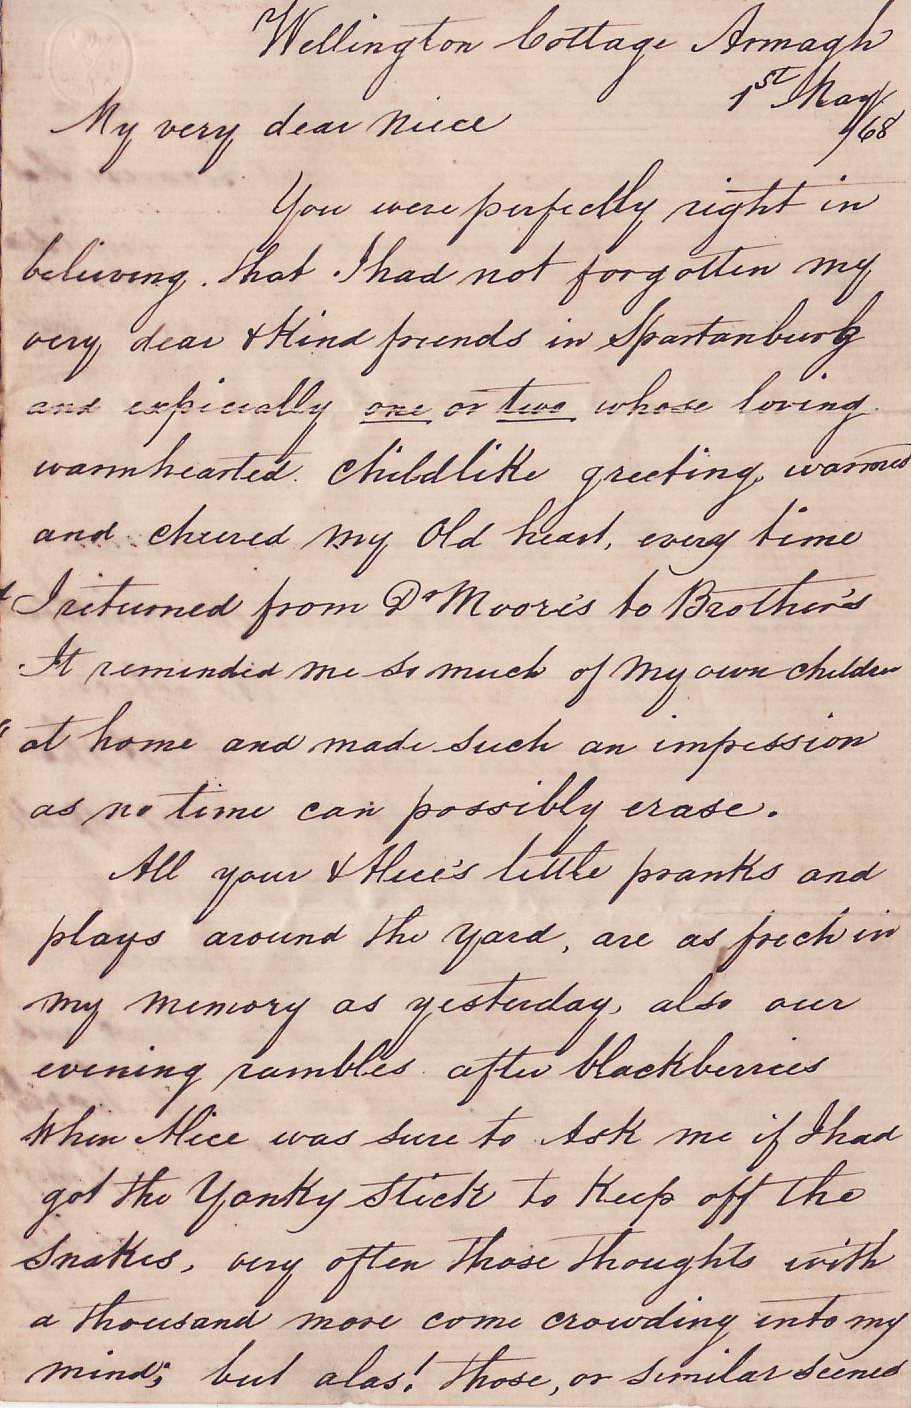 Wellington Cottage Armagh
1st May
/68
My very dear Niece
You were perfectly right in
believing that I had not forgotten my
very dear & Kind friends in Spartanburg
and expicially one or two whose loving
warmhearted childlike greeting, warmed
and cheered my Old heart, every time
I returned from Dr Moore's to Brother's
It reminded me so much of My own children
at home and made such an impession
as no time can possibly erase.
All your & Alice's little pranks and
plays around the Yard, are as frech in
my memory as yesterday, also our
evening rambles after blackberries
When Alice was sure to Ask me if I had
got the Yanky Stick to Keep off the
Snakes, very often those thoughts with
a thousand more come crowding into my
mind; but alas! those, or similar scenes